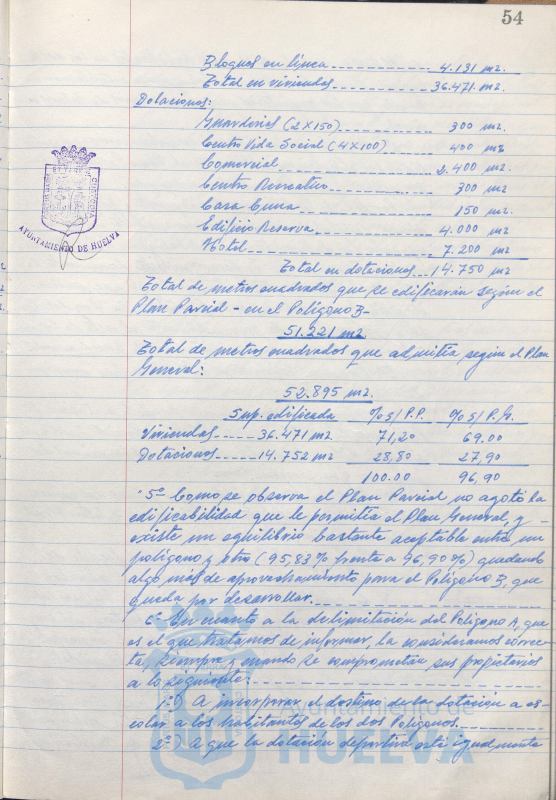 54
Bloques en línea ---------- 4.131 m2.
Total en viviendas ---------- 36.471 m2.
Dotaciones:
Guarderías (2x150) ---------- 300 m2.
Centro Vida Social (4x100) ---------- 400 m2
Comercial ---------- 2.400 m2.
Centro Recreativo ---------- 300 m2
Casa Cuna ---------- 150 m2.
Edificio Reserva ---------- 4.000 m2
Hotel ---------- 7.200 m2
Total en dotaciones ---- 14.750 m2
Total de metros cuadrados que se edificarán según el
Plan Parcial - en el Polígono B-
51.221 m2
Total de metros cuadrados que admitía según el Plan
General:
52.895 m2.
Sup. edificada % s/ P.P. % s/ P.G.
Viviendas ----- 36.471 m2 71,20 69.00
Dotaciones ---- 14.752 m2 28,80 27,90
100.00 96,90
"5º Como se observa el Plan Parcial no agotó la
edificabilidad que le permitía el Plan General, y
existe un equilibrio bastante aceptable entre un
polígono y otro (95,83% frente a 96,90%) quedando
algo más de aprovechamiento para el Polígono B, que
queda por desarrollar.
6º En cuanto a la delimitación del Polígono A, que
es el que tratamos de informar, la consideramos correc-
ta, siempre y cuando se comprometan sus propietarios
a lo siguiente:
1º) A incorporar el destino de la dotación a es-
colar a los habitantes de los dos Polígonos.
2º) A que la dotación deportiva esté igualmente
AYUNTAMIENTO DE HUELVA
Ayuntamiento de
HUELVA